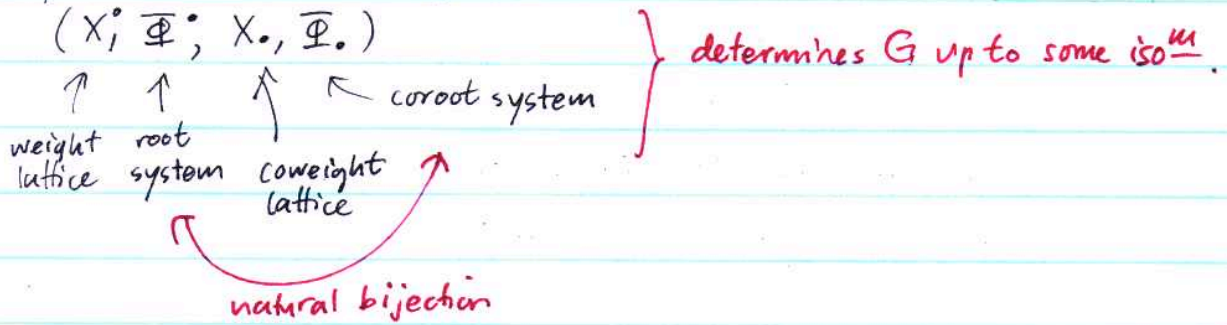 (X^•, Φ^•, X_•, Φ_•)
determines G up to some iso^m.
coroot system
weight lattice
root system
coweight lattice
natural bijection